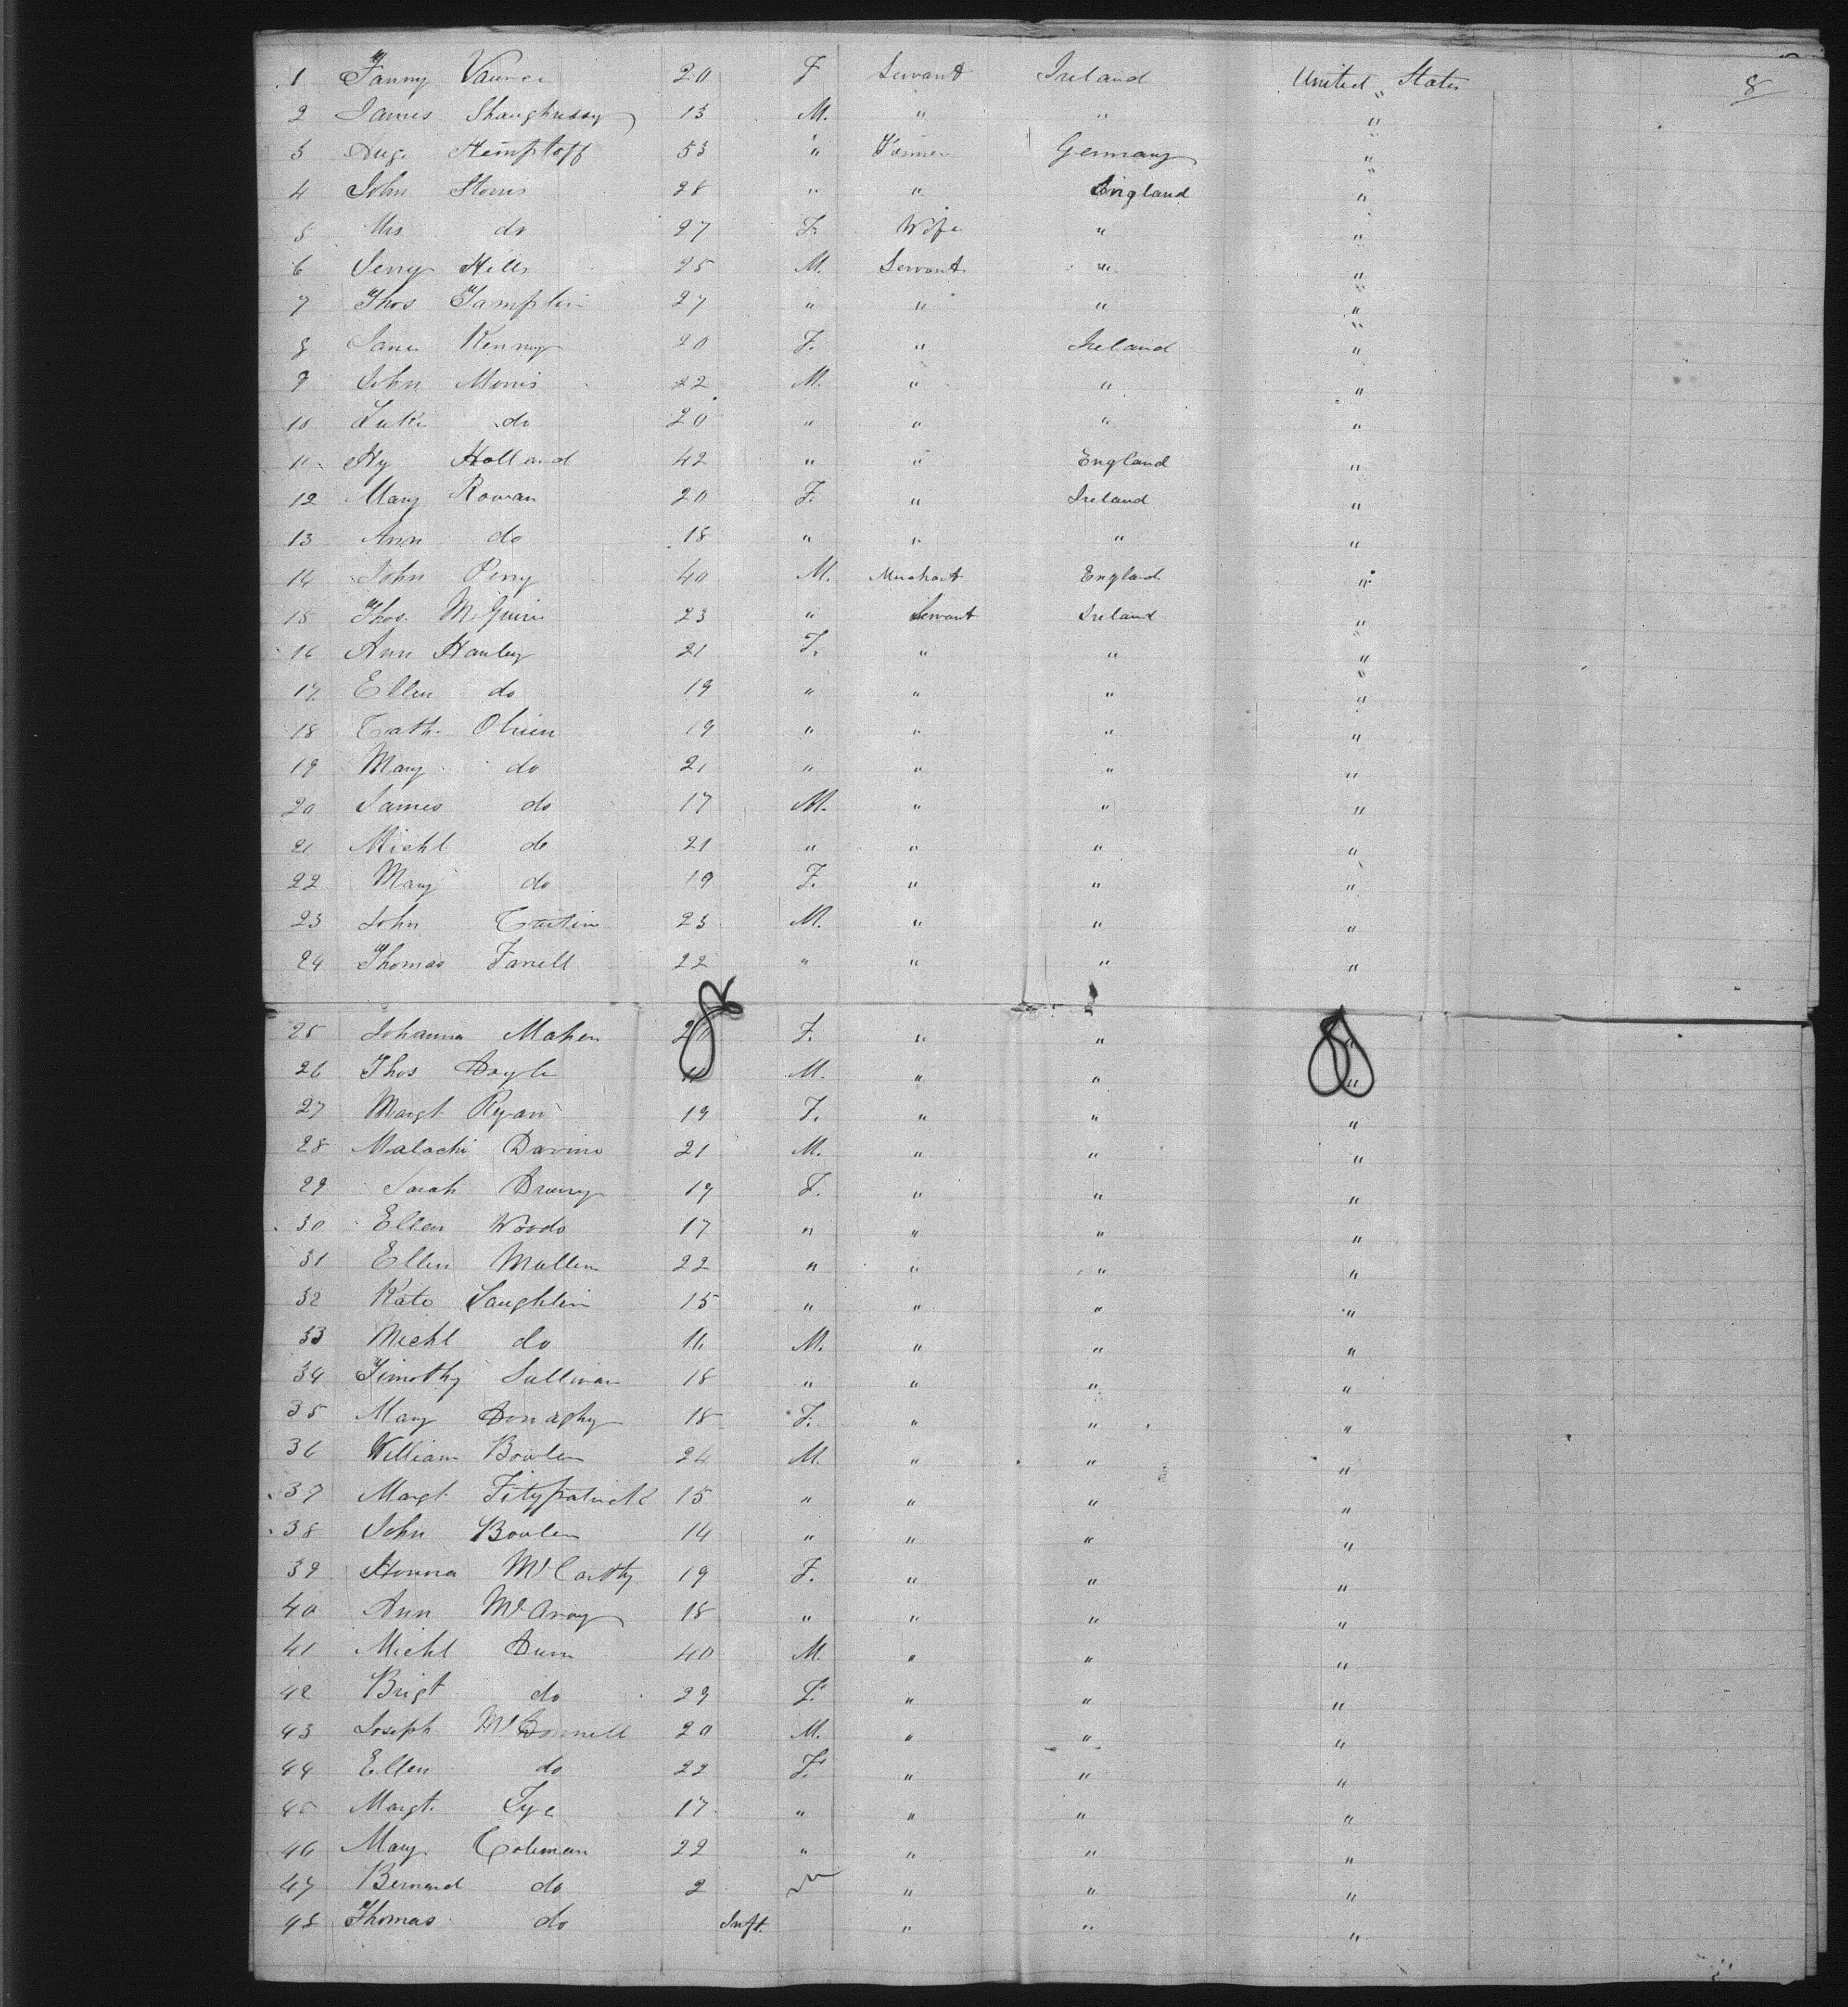 8
1 Fanny 20 F Servant Ireland United States
2 James Shaughnessy 13 M. " " "
3 Aug. Hemptoff 53 " Germany "
4 John 28 " " England "
5 Mrs do 27 F. Wife " "
6 Hills 25 M. Servant " "
7 Thos Tamplin 27 " " " "
8 Jane Kenny 20 F. " Ireland "
9 John Morris 22 M. " " "
10 Luke do 20 " " " "
11 Hy Holland 42 " " England "
12 Mary Rowan 20 F. " Ireland "
13 Ann do 18 " " " "
14 John Perry 40 M. Merchant England "
15 Thos. McGuire 23 " Servant Ireland "
16 Ann Hanley 21 F. " " "
17 Ellen do 19 " " " "
18 Cath. OBrien 19 " " " "
19 Mary do 21 " " " "
20 James do 17 M. " " "
21 Michl do 21 " " " "
22 Mary do 19 F. " " "
23 John 23 M. " " "
24 Thomas Farrell 22 " " " "
25 Johanna Maher F. " " "
26 Thos Doyle M. " " "
27 Margt Ryan 19 F. " " "
28 Malachi 21 M. " " "
29 Sarah Drury 19 F. " " "
30 Ellen Woods 17 " " " "
31 Ellen Mullen 22 " " " "
32 Kate Laughlin 15 " " " "
33 Michl do M. " " "
34 Timothy Sullivan 18 " " " "
35 Mary Donaghy 18 F. " " "
36 William Bowlen 24 M. " " "
37 Margt. Fitzpatrick 15 " " " "
38 John Bowlen 14 " " " "
39 Honora McCarthy 19 F. " " "
40 Ann McAvoy 18 " " " "
41 Michl Dunn 40 M. " " "
42 Brigt do 29 F. " " "
43 Joseph McDonnell 20 M. " " "
44 Ellen do 22 F. " " "
45 Margt. 17 " " " "
46 Mary Coleman 22 " " " "
47 Bernard do 2 " " "
48 Thomas do Inft. " " "